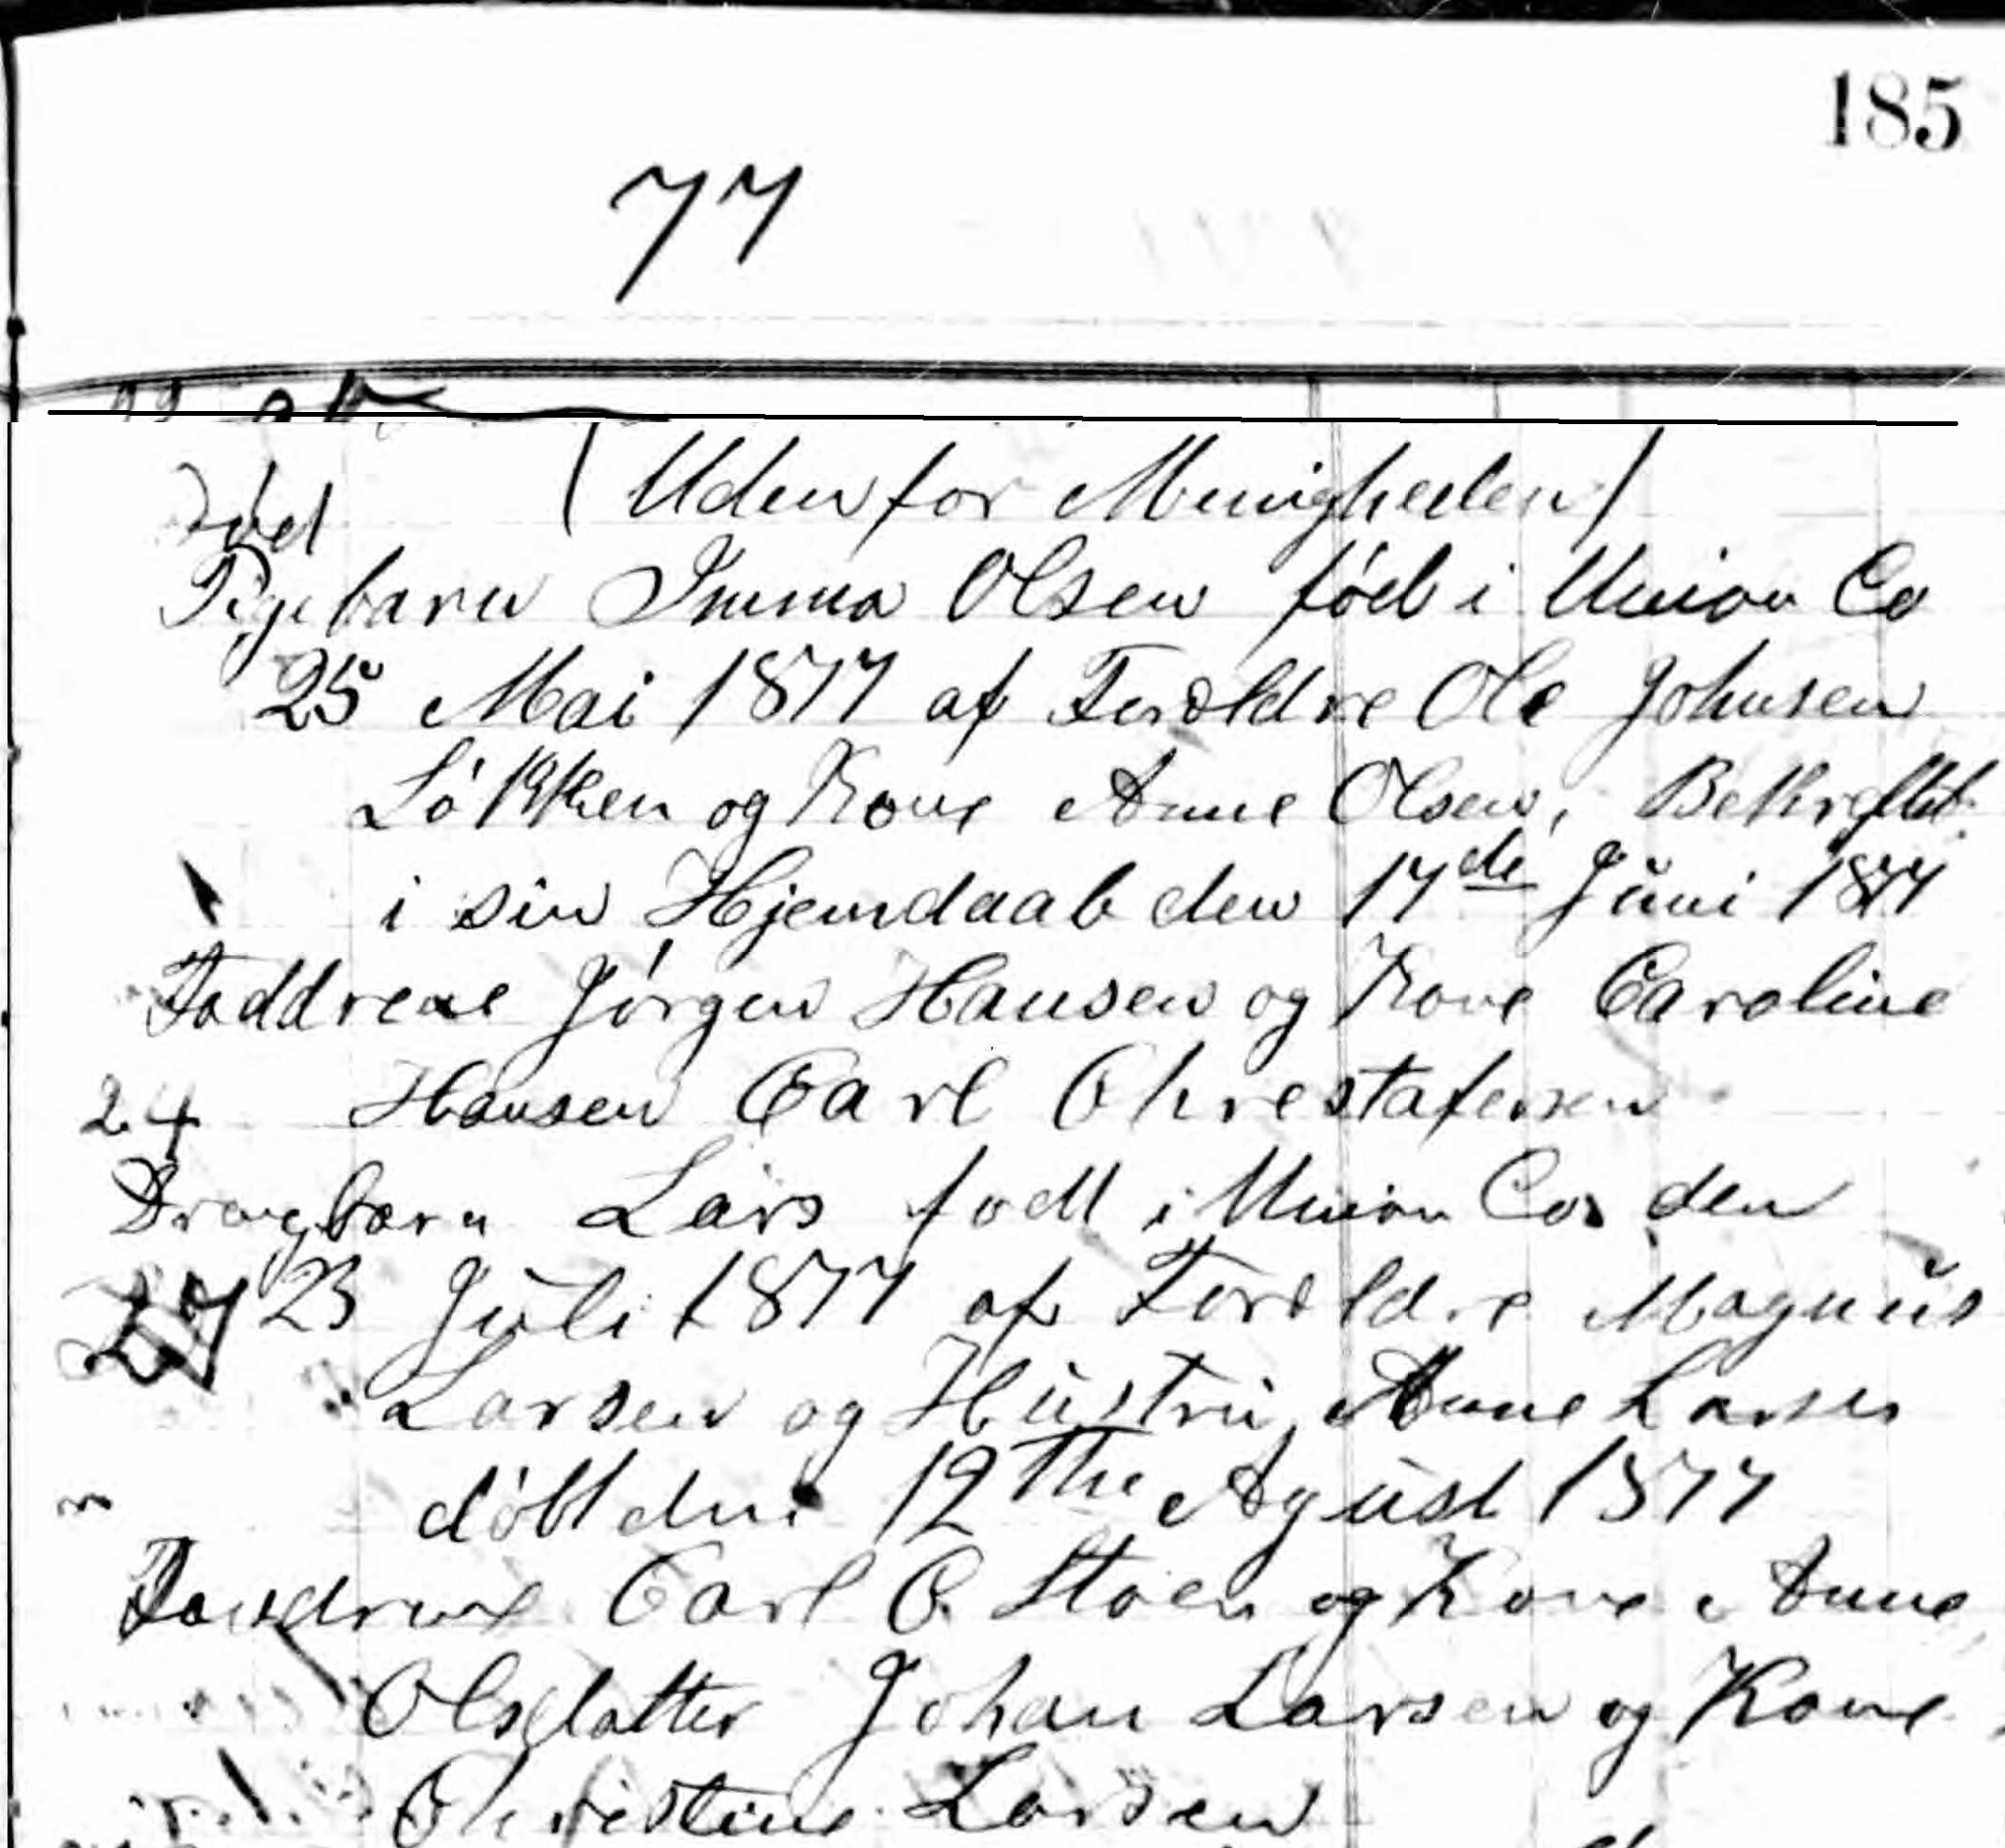 185
77
(Uden for Menigheden)
Pigebarn Imma Olsen föd i Union Co
25 Mai 1877 af Foröldre Ole Johnsen
Lökken og Kone Anne Olsen, Bekreftet
i sin Hjemdaab den 17de Juni 1877
Faddrene Jörgen Hansen og Kone Caroline
24 Hansen Carl Chrestafersen
Drengbarn Lars født i Union Co den
27 23 Juli 1877 af Foröldre Magnus
Larsen og Hustru Anne Larsen
döbt den 12the Agust 1877
Carl O. Stoen og Kone Anne
Olsdatter Johan Larsen og Kone
Christine Larsen